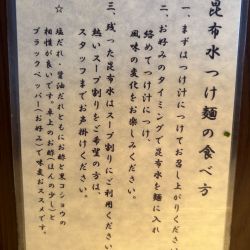 昆布水つけ麺の食べ方
一、まずはつけ汁につけてお召し上がりください
二、お好みのタイミングで昆布水を麺に入れ
絡めてつけ汁につけ、
風味の変化をお楽しみください。
三、残った昆布水はスープ割りにご利用ください
熱いスープ割りをご希望の方は、
スタッフまでお声掛けください。
☆ 塩だれ・醤油だれともにお酢と黒コショウの
相性が良いです。卓上のお酢(ほんの少し)と
ブラックペッパー(お好み)で味変おススメです。